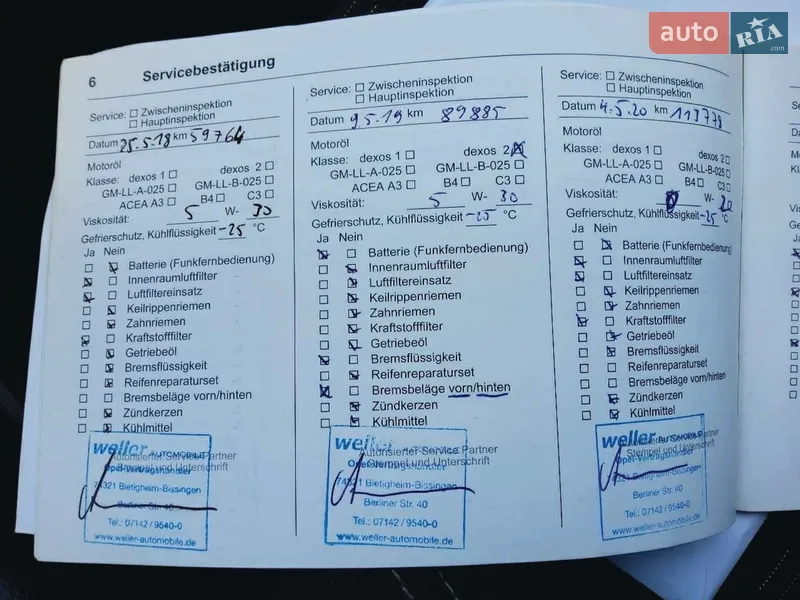 auto RIA .com
6 Servicebestätigung
Service: Zwischeninspektion
Hauptinspektion
Datum 25.5.18 km 59764
Motoröl
Klasse: dexos 1 dexos 2
GM-LL-A-025 GM-LL-B-025
ACEA A3 B4 C3
Viskosität: 5 W- 30
Gefrierschutz, Kühlflüssigkeit -25 °C
Ja Nein
Batterie (Funkfernbedienung)
Innenraumluftfilter
Luftfiltereinsatz
Keilrippenriemen
Zahnriemen
Kraftstofffilter
Getriebeöl
Bremsflüssigkeit
Reifenreparaturset
Bremsbeläge vorn/hinten
Zündkerzen
Kühlmittel
Autorisierter Service Partner
Stempel und Unterschrift
weller AUTOMOBILE
Opel-Vertragshändler
74321 Bietigheim-Bissingen
Berliner Str. 40
Tel.: 07142/9540-0
www.weller-automobile.de
Service: Zwischeninspektion
Hauptinspektion
Datum 9.5.19 km 89885
Motoröl
Klasse: dexos 1 dexos 2
GM-LL-A-025 GM-LL-B-025
ACEA A3 B4 C3
Viskosität: 5 W- 30
Gefrierschutz, Kühlflüssigkeit -25 °C
Ja Nein
Batterie (Funkfernbedienung)
Innenraumluftfilter
Luftfiltereinsatz
Keilrippenriemen
Zahnriemen
Kraftstofffilter
Getriebeöl
Bremsflüssigkeit
Reifenreparaturset
Bremsbeläge vorn/hinten
Zündkerzen
Kühlmittel
Autorisierter Service Partner
Stempel und Unterschrift
weller
74321 Bietigheim-Bissingen
Berliner Str. 40
Tel.: 07142/9540-0
www.weller-automobile.de
Service: Zwischeninspektion
Hauptinspektion
Datum 4.5.20 km 113778
Motoröl
Klasse: dexos 1 dexos 2
GM-LL-A-025 GM-LL-B-025
ACEA A3 B4 C3
Viskosität: 0 W- 20
Gefrierschutz, Kühlflüssigkeit -25 °C
Ja Nein
Batterie (Funkfernbedienung)
Innenraumluftfilter
Luftfiltereinsatz
Keilrippenriemen
Zahnriemen
Kraftstofffilter
Getriebeöl
Bremsflüssigkeit
Reifenreparaturset
Bremsbeläge vorn/hinten
Zündkerzen
Kühlmittel
Autorisierter Service Partner
Stempel und Unterschrift
weller AUTOMOBILE
Opel-Vertragshändler
74321 Bietigheim-Bissingen
Berliner Str. 40
Tel.: 07142/9540-0
www.weller-automobile.de